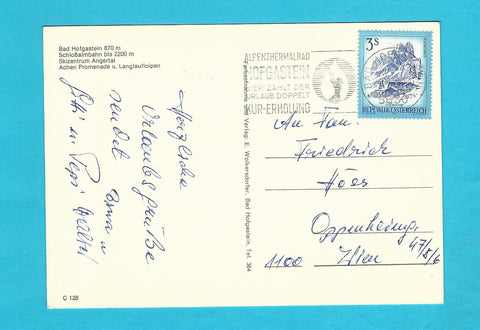 Bad Hofgastein 870 m
Schloßalmbahn bis 2200 m
Skizentrum Angertal
Achen Promenade u. Langlaufloipen
ALPENTHERMALBAD
HOFGASTEIN
HIER ZÄHLT DER
URLAUB DOPPELT
KUR-ERHOLUNG
3S
REPUBLIK ÖSTERREICH
Herzliche
Urlaubsgrüße
sendet
u
Pepi
An Fam.
Friedrich
Höss
Oppenheimg.
47/5/6
1100 Wien
Verlag: E. Wolkersdorfer, Bad Hofgastein, Tel. 364
C 128